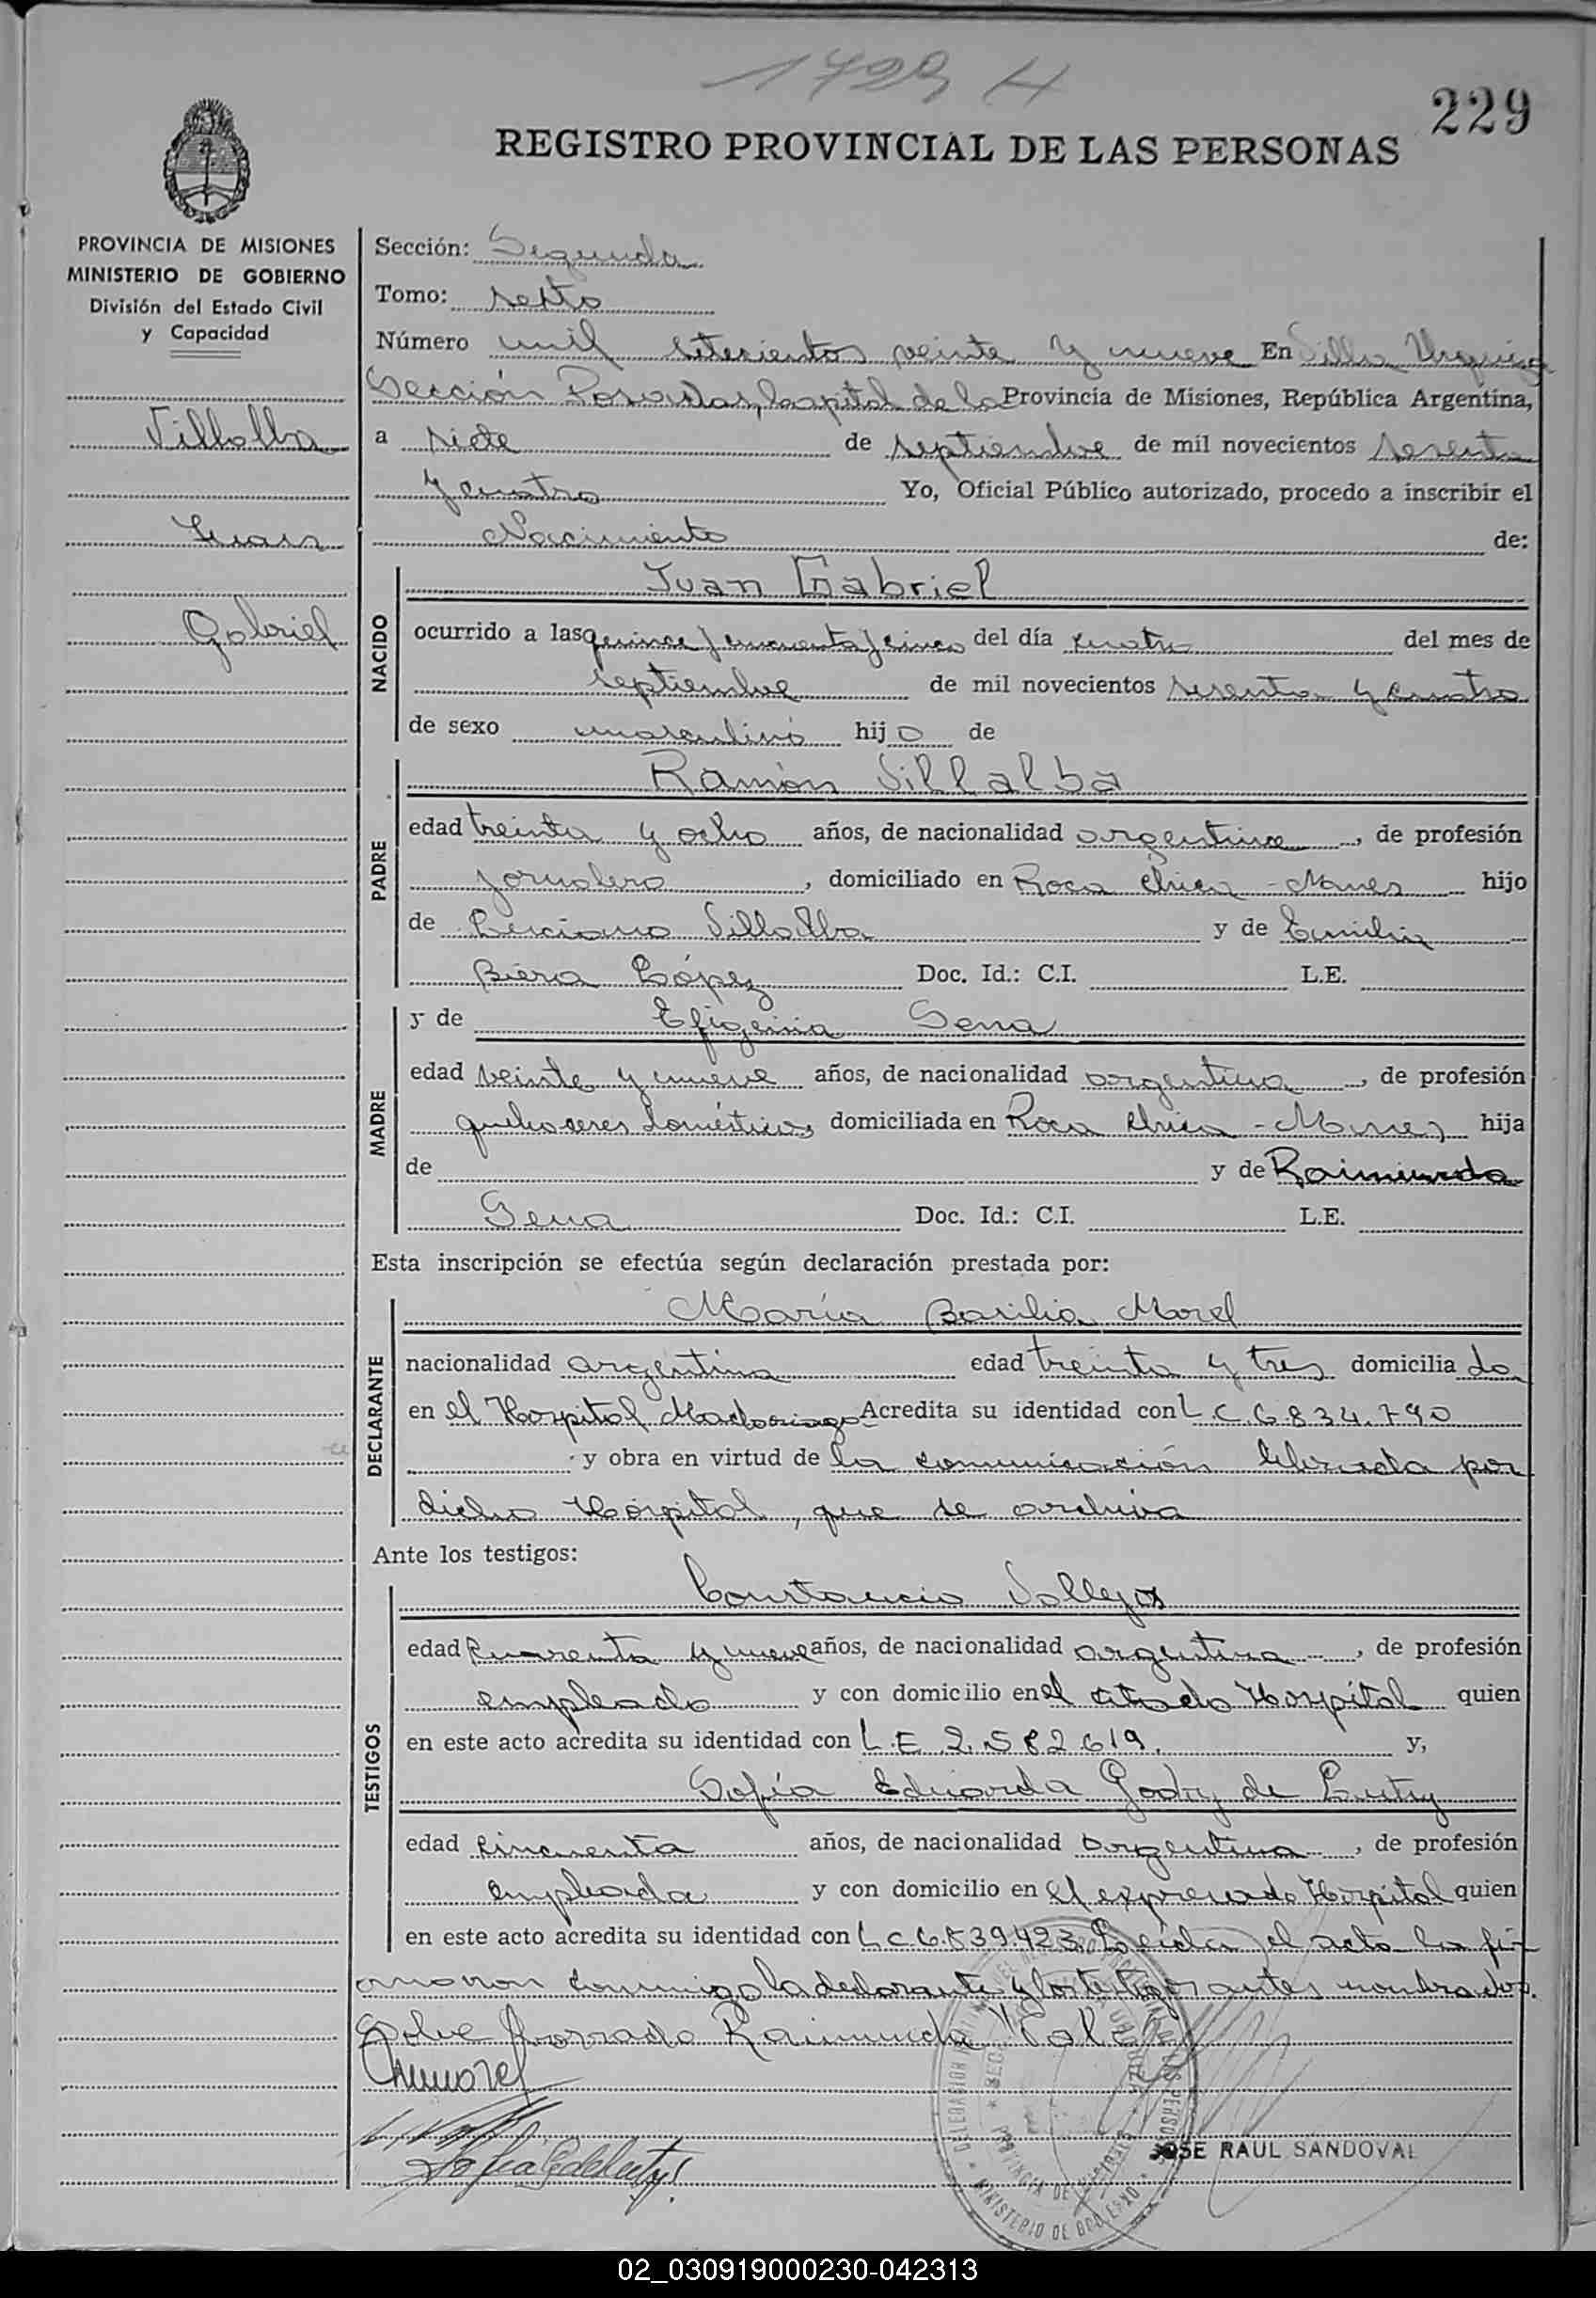 1729 H
229
REGISTRO PROVINCIAL DE LAS PERSONAS
PROVINCIA DE MISIONES
MINISTERIO DE GOBIERNO
División del Estado Civil
y Capacidad
Villalba
Juan
Gabriel
Sección: Segunda
Tomo: sexto
Número mil setecientos veinte y nueve En Villa Urquiza
Sección Posadas, Capital de la Provincia de Misiones, República Argentina,
a siete de septiembre de mil novecientos sesenta
y cuatro Yo, Oficial Público autorizado, procedo a inscribir el
Nacimiento de:
NACIDO
Juan Gabriel
ocurrido a las quince y cincuenta y cinco del día cuatro del mes de
septiembre de mil novecientos sesenta y cuatro
de sexo masculino hijo de
PADRE
Ramón Villalba
edad treinta y ocho años, de nacionalidad argentina, de profesión
jornalero, domiciliado en Roca Chica - Mnes hijo
de Villalba y de Emilia
Biera López Doc. Id.: C.I. L.E.
MADRE
y de Efigenia Sena
edad veinte y nueve años, de nacionalidad argentina, de profesión
quehaceres domésticos, domiciliada en Roca Chica - Mnes hija
de y de Raimunda
Sena Doc. Id.: C.I. L.E.
Esta inscripción se efectúa según declaración prestada por:
DECLARANTE
María Basilia Morel
nacionalidad argentina edad treinta y tres domiciliado
en el Hospital Madariaga Acredita su identidad con L.C. 6.834.790
y obra en virtud de la comunicación librada por
dicho Hospital, que se archiva
Ante los testigos:
TESTIGOS
Constancio Vallejos
edad cuarenta y nueve años, de nacionalidad argentina, de profesión
empleado y con domicilio en el citado Hospital quien
en este acto acredita su identidad con L.E. 2.582.619. y,
Sofía Eduarda Godoy de
edad cincuenta años, de nacionalidad argentina, de profesión
empleada y con domicilio en el expresado Hospital quien
en este acto acredita su identidad con L.C. 6.839.423. Leída el acta la fir
maron conmigo la declarante y los testigos antes nombrados.
Sobre borrado Raimunda Vale
JOSE RAUL SANDOVAL
02_030919000230-042313